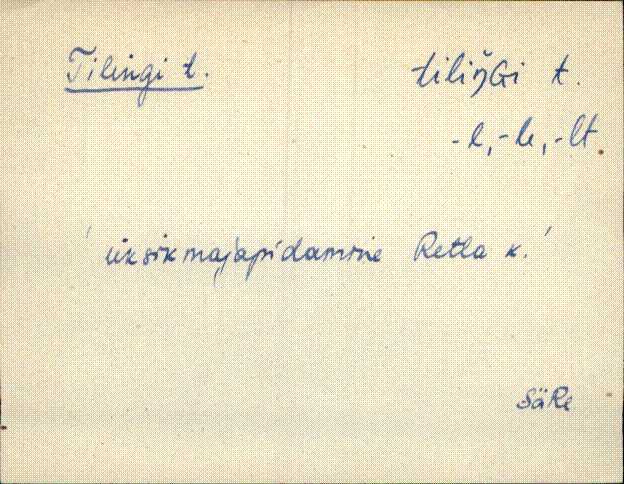 Tilingi t. tiliŋGi t.
-l, -le, -lt.
'üksikmajapidamine Retla k.'
SäRe